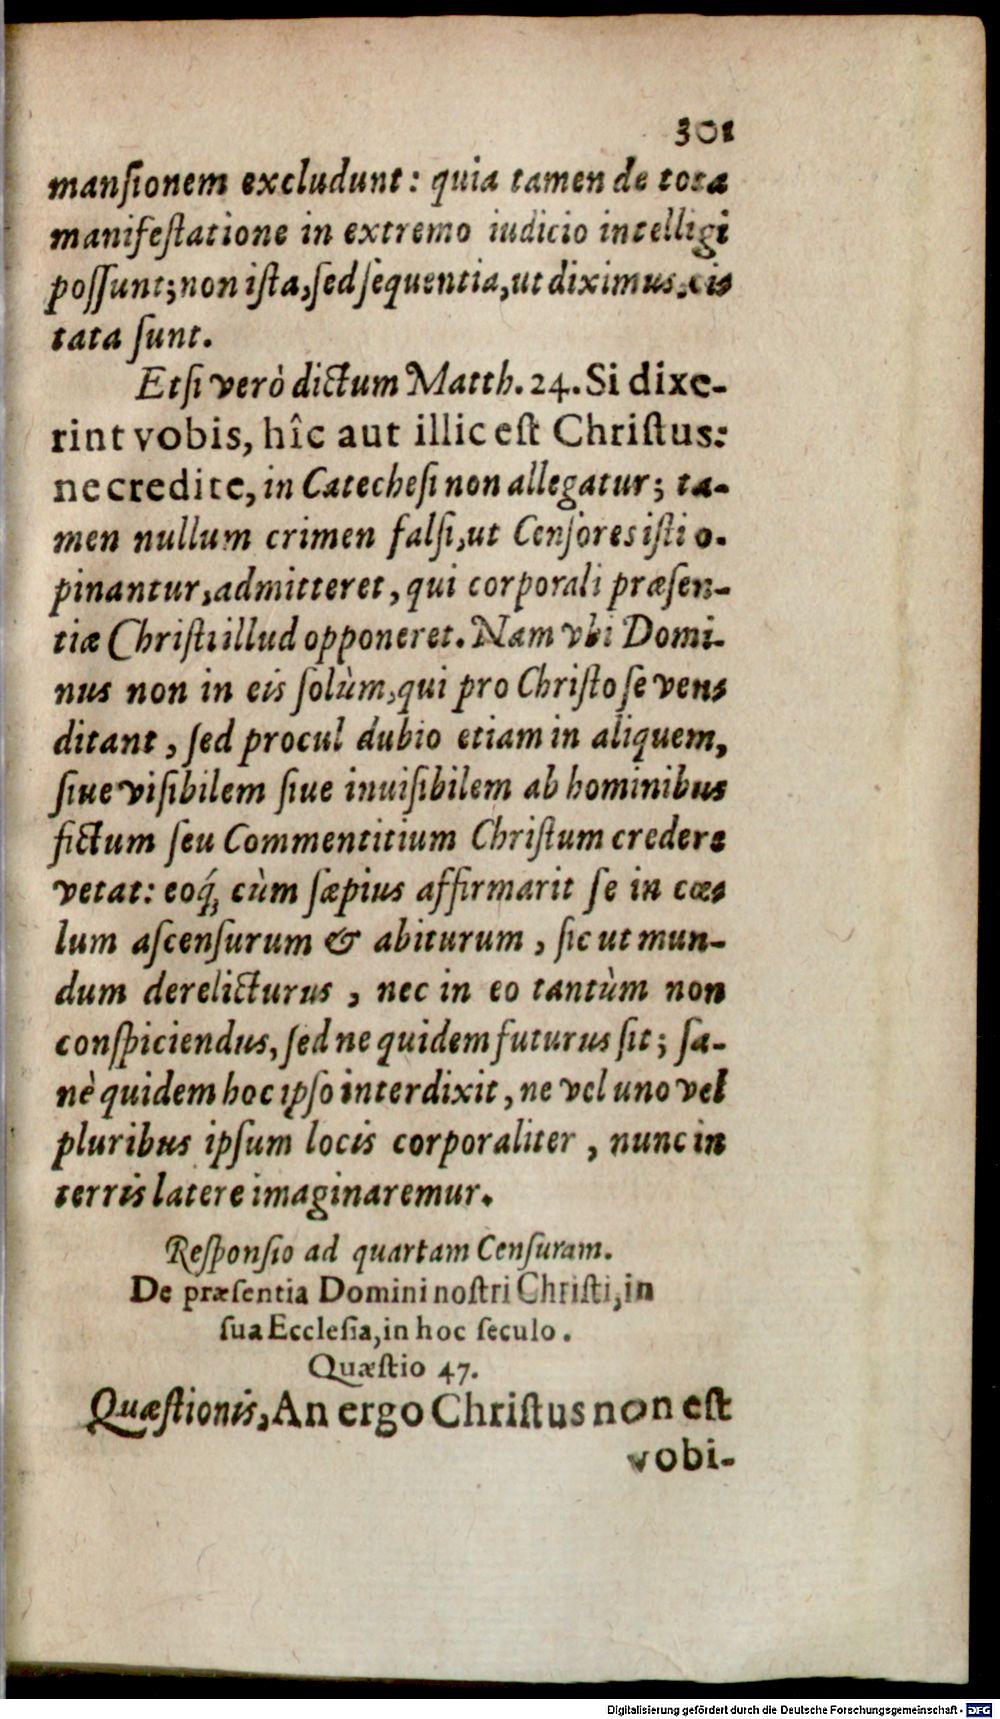 301
manſionem excludunt: quia tamen de tota
manifeſtatione in extremo iudicio intelligi
poſſunt; non iſta, ſed ſequentia, ut diximus, ci-
tata ſunt.
Etſi verò dictum Matth. 24. Si dixe-
rint vobis, hîc aut illic eſt Chriſtus:
ne credite, in Catecheſi non allegatur; ta-
men nullum crimen falſi, ut Cenſores iſti o-
pinantur, admitteret, qui corporali præſen-
tiæ Chriſti illud opponeret. Nam vbi Domi-
nus non in eis ſolùm, qui pro Chriſto ſe ven-
ditant, ſed procul dubio etiam in aliquem,
ſiue viſibilem ſiue inuiſibilem ab hominibus
fictum ſeu Commentitium Chriſtum credere
vetat: eoq́; cùm ſæpius affirmarit ſe in cœ-
lum aſcenſurum & abiturum, ſic ut mun-
dum derelicturus, nec in eo tantùm non
conſpiciendus, ſed ne quidem futurus ſit; ſa-
nè quidem hoc ipſo interdixit, ne vel uno vel
pluribus ipſum locis corporaliter, nunc in
terris latere imaginaremur.
Reſponſio ad quartam Cenſuram.
De præſentia Domini noſtri Chriſti, in
ſua Eccleſia, in hoc ſeculo.
Quæſtio 47.
Quæſtionis, An ergo Chriſtus non eſt
vobi-
Digitalisierung gefördert durch die Deutsche Forschungsgemeinschaft - DFG